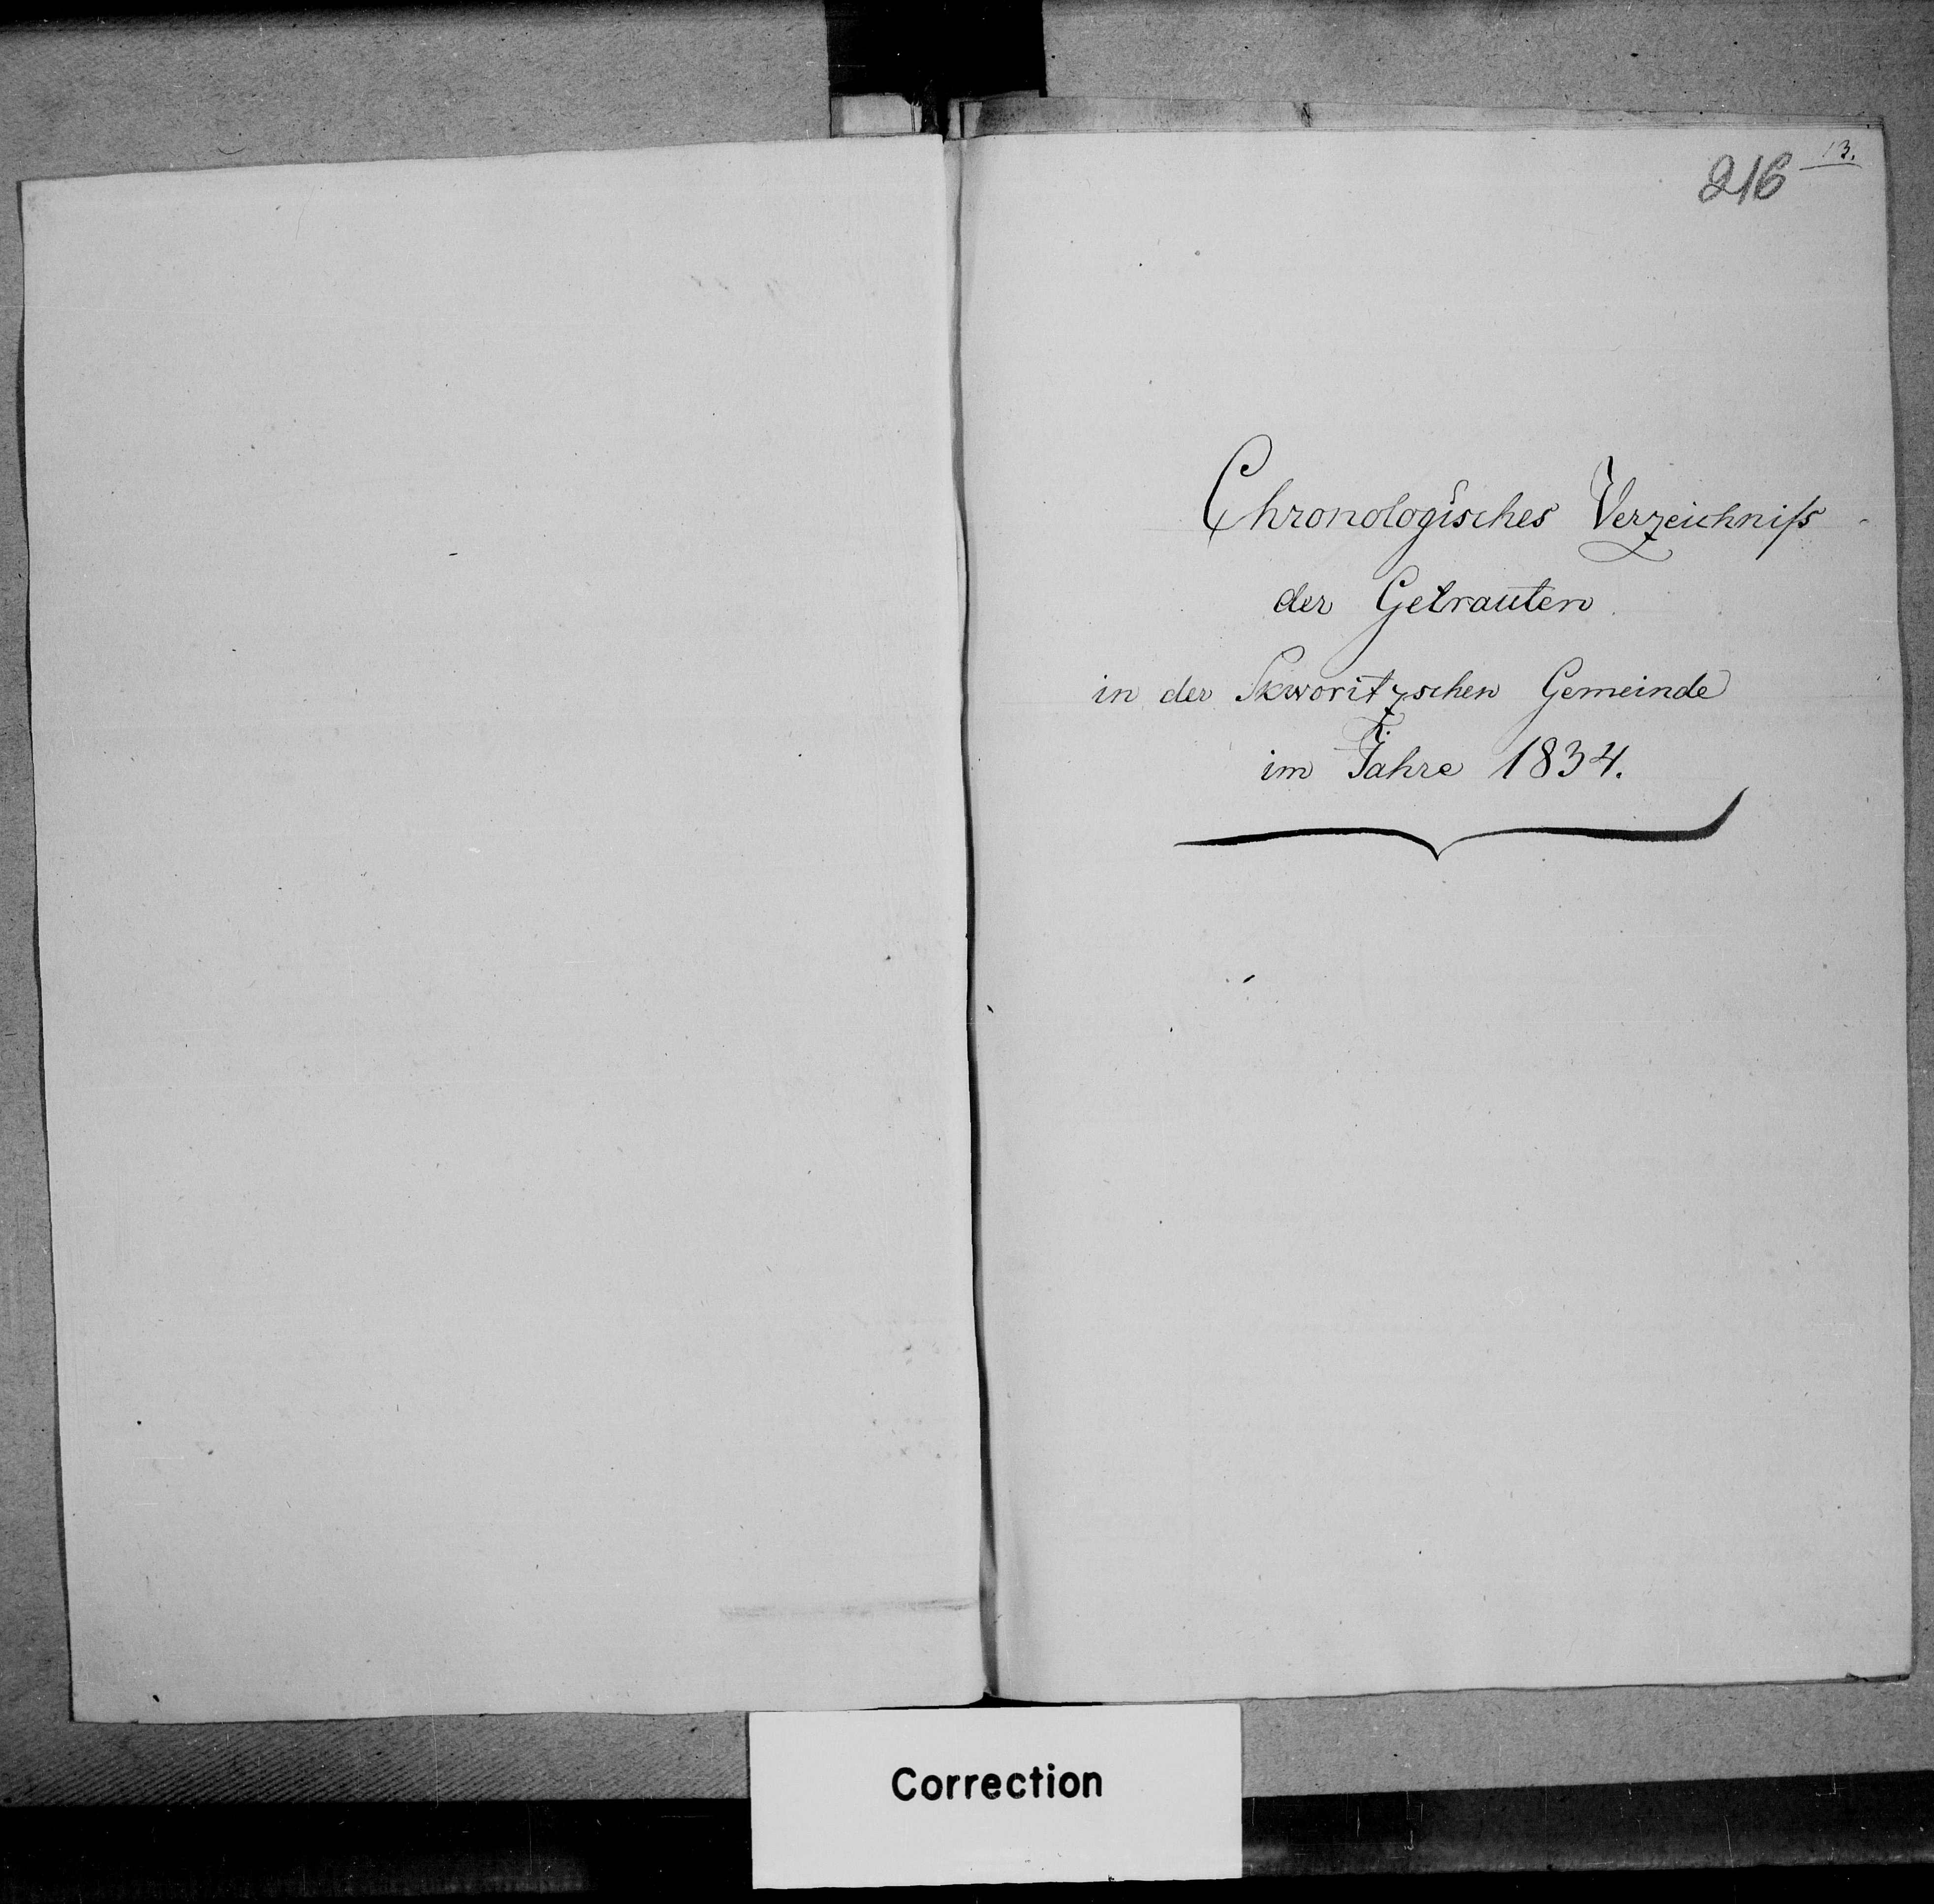 216
13.
Chronologisches Verzeichniſs
der Getrauten
in der Skworitzschen Gemeinde
im Jahre 1834.
Correction